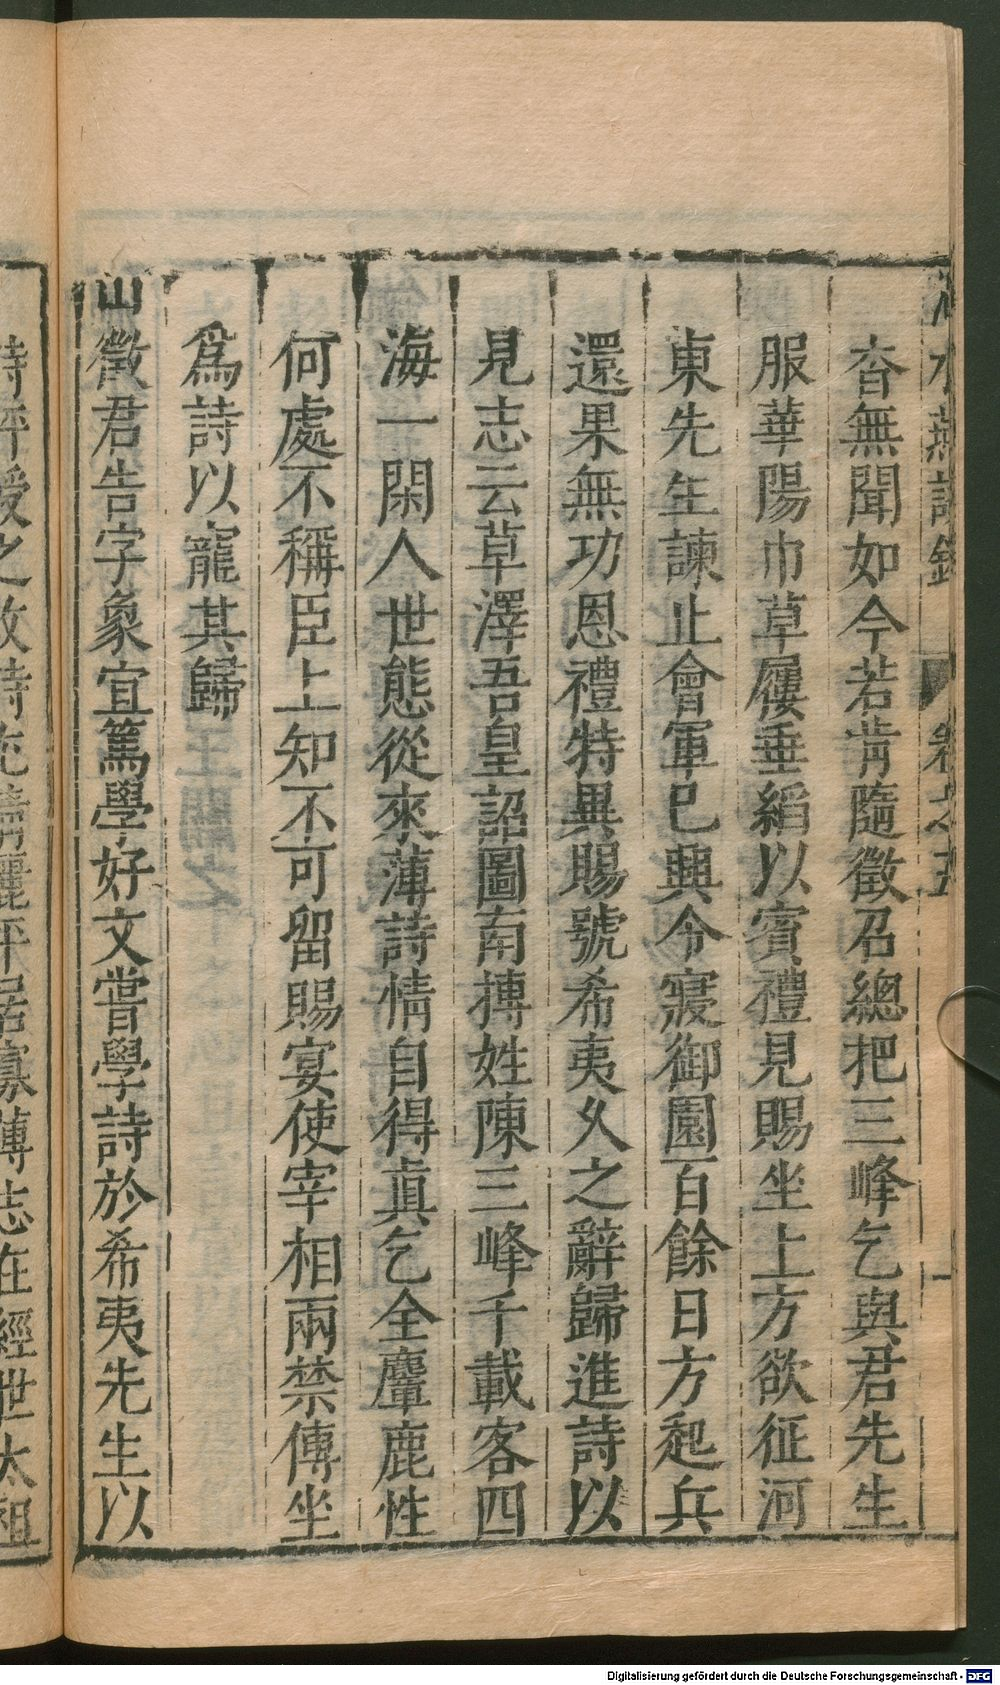 水燕談錄 卷之五
杳無聞如今若肯隨徵召總把三峰乞與君先生
服華陽巾草屨垂縚以賓禮見賜坐上方欲征河
東先生諫止會軍已興令寢御園百餘日方起兵
還果無功恩禮特異賜號希夷久之辭歸進詩以
見志云草澤吾皇詔圖南搏姓陳三峰千載客四
海一閑人世態從來薄詩情自得眞乞全麞鹿性
何處不稱臣上知不可留賜宴使宰相兩禁傳坐
爲詩以寵其歸
山徵君告字象宜篤學好文嘗學詩於希夷先生以
詩評授之故詩尤 麗平居寡薄志在經世太祖
Digitalisierung gefördert durch die Deutsche Forschungsgemeinschaft - DFG